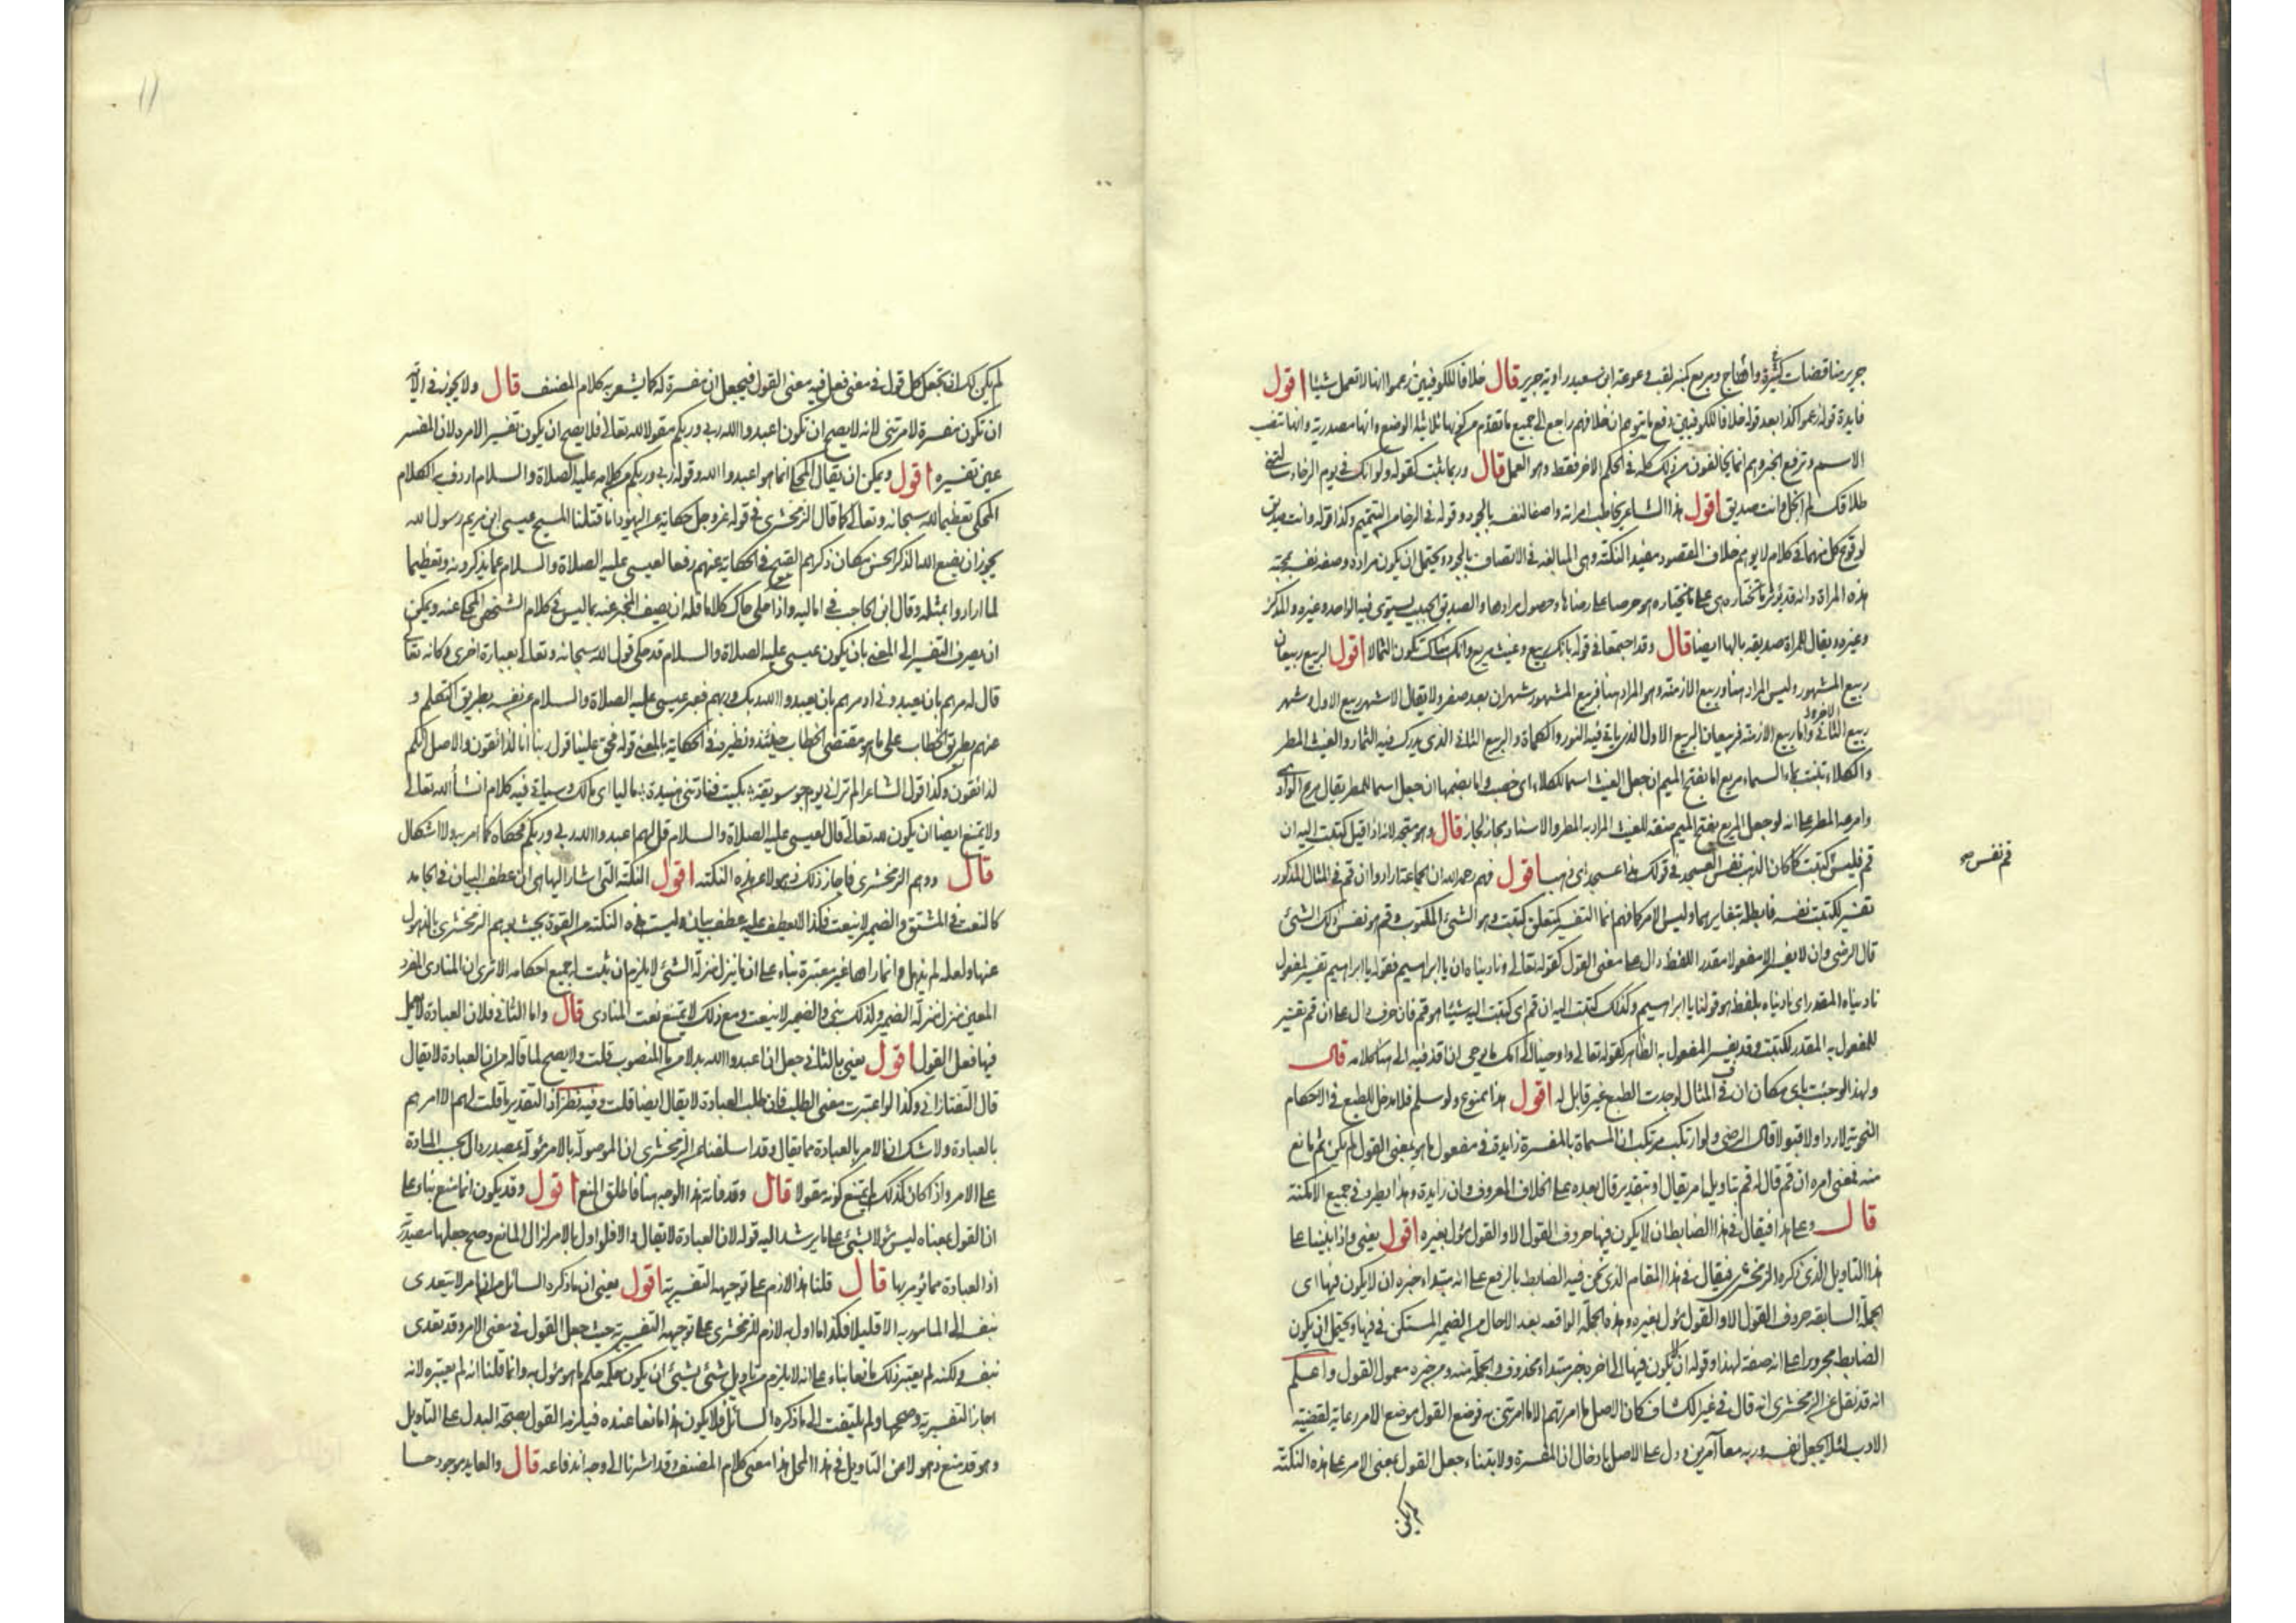 جرير مناقضات كثيرة وأهاج ومربع كسر لقب وعوعة ابن سعيد راوية جرير قال خلافا للكوفيين زعموا انها لا تعمل شيئا اقول
فايدة قوله زعموا كذا بعد قوله خلافا للكوفيين دفع ما يتوهم ان خلافهم راجع الى جميع ما تقدم من كونها ثلاثية الوضع وانها مصدرية وانها تنصب
الاسم وترفع الخبر وهم انما يخالفون من ذلك كله في الحكم الاخر فقط وهو العمل قال وربما ثبت كقوله ولو انك في يوم الرخاء سالتني
طلاقك لم ابخل وانت صديق اقول هذا الشاعر يخاطب امراته واصفا لنفسه بالجود وقوله في الرخا من التتميم وكذا قوله وانت صديق
لوقوع كل منهما في كلام لا يوهم خلاف المقصود مفيد النكتة وهي المبالغة في الاتصاف بالجود ويحتمل ان يكون مراده وصف نفسه بمحبة
هذه المراة وانه قد يؤثر ما تختاره هي على ما يختاره هو حرصا على رضاها وحصول مرادها والصديق الحبيب يستوي فيه الواحد وغيره والمذكر
وغيره ويقال للمراة صديقة بالها ايضا قال وقد اجتمعا في قوله بانك ربيع وغيث مريع وانك هناك تكون الثمالا اقول الربيع ربيعان
ربيع المشهور وليس المراد هنا وربيع الازمنة وهو المراد هنا فربيع المشهور شهران بعد صفر ولا يقال الا شهر ربيع الاول وشهر
ربيع الثاني الاخر واما ربيع الازمنة فربيعان الربيع الاول الذي ياتي فيه النور والكماة والربيع الثاني الذي يدرك فيه الثمار والغيث المطر
والكلاء ينبت بماء السماء ومريع اما بفتح الميم ان جعل الغيث اسما للكلاء اي خصب واما بضمها ان جعل اسما للمطر يقال مرع الوادي
وامرعه المطر على انه لو جعل المريع بفتح الميم صفة للغيث المراد به المطر والاسناد مجاز لجاز قال وهو متجه لانه اذا قيل كتبت اليه ان
قم فليس كتبت كما كان الذهب نفس العسجد في قولك هذا عسجد اي ذهب اقول فهم رحمه الله ان الجماعة ارادوا ان قم في المثال المذكور
قم نفس صح
تفسير لكتبت نفسه فابطله بتغايرهما وليس الامر كما فهم انما التفسير لمتعلق كتبت وهو الشئ المكتوب وقم هو نفس ذلك الشئ
قال الرضي وان لا يفسر الا مفعولا مقدرا للفظ دال على معنى القول كقوله تعالى وناديناه ان يا ابراهيم فقوله يا ابراهيم تفسير لمفعول
ناديناه المقدر اي ناديناه بلفظ هو قولنا يا ابراهيم وكذلك كتبت اليه ان قم اي كتبت اليه شيئا هو قم فان حرف دال على ان قم تفسير
للمفعول به المقدر لكتبت وقد يفسر المفعول به الظاهر كقوله تعالى واوحينا الى امك ما يوحى ان اقذفيه الى هنا كلامه قال
ولهذا لو جئت باي مكان ان في المثال لوجدت الطبع غير قابل له اقول هذا ممنوع ولو سلم فلا مدخل للطبع في الاحكام
النحوية لا ردا ولا قبولا قال الرضي ولو ارتكب مرتكب ان المسماة بالمفسرة زايدة في مفعول ما هو بمعنى القول لم يكن ثم مانع
منه فمعنى امره ان قم قال له قم بتاويل امر بقال او بتقدير قال بعده على الخلاف المعروف وان زايدة وهذا يطرد في جميع الامكنة
قال وعلى هذا فيقال في هذا الضابط ان لا يكون فيها حروف القول الا والقول مؤول بغيره اقول يعني واذا بنينا على
هذا التاويل الذي ذكره الزمخشري فيقال في هذا المقام الذي نحن فيه الضابط بالرفع على انه مبتداء خبره ان لا يكون فيها اي
الجملة السابقة حروف القول الا والقول مؤول بغيره وهذه الجملة الواقعة بعد الا حال من الضمير المستكن في فيها ويحتمل ان يكون
الضابط مجرورا على انه صفة لهذا وقوله ان لا يكون فيها الى اخره خبر مبتداء محذوف والجملة منه ومن خبره معمول القول واعلم
انه قد نقل عن الزمخشري انه قال في غير الكشاف كان الاصل ما امرتهم الا ما امرتني به فوضع القول موضع الامر رعاية لقضية
الادب لئلا يجعل نفسه وربه معا آمرين ودل على الاصل بادخال ان المفسرة ولابتناء جعل القول بمعنى الامر على هذه النكتة
لم يكن
١١
لم يكن لك ان تجعل كل قول في معنى فعل فيه معنى القول فيجعل ان مفسرة له كما يشعر به كلام المصنف قال ولا يجوز في الآية
ان تكون مفسرة لامرتني لانه لا يصح ان تكون اعبدوا الله ربي وربكم مقولا لله تعالى فلا يصح ان يكون تفسير الامره لان المفسر
عين تفسيره اقول ويمكن ان يقال المحكي انما هو اعبدوا الله وقوله ربي وربكم من كلامه عليه الصلاة والسلام اردف به الكلام
المحكي تعظيما لله سبحانه وتعالى كما قال الزمخشري في قوله عز وجل حكاية عن اليهود انا قتلنا المسيح عيسى ابن مريم رسول الله
يجوز ان يضع الله الذكر الحسن مكان ذكرهم القبيح في الحكاية عنهم رفعا لعيسى عليه الصلاة والسلام عما يذكرونه وتعظيما
لما ارادوا بمثله وقال ابن الحاجب في اماليه واذا حكى حاك كلاما فله ان يصف المخبر عنه بما ليس في كلام الشخص المحكي عنه ويمكن
ان يصرف التفسير الى المعنى بان يكون عيسى عليه الصلاة والسلام قد حكى قول الله سبحانه وتعالى بعبارة اخرى وكانه تعالى
قال له مرهم بان يعبدوني او مرهم بان يعبدوا الله ربك وربهم فعبر عيسى عليه الصلاة والسلام عن نفسه بطريق التكلم و
عنهم بطريق الخطاب على ما هو مقتضى الخطاب حينئذ ونظيره في الحكاية بالمعنى قوله فحق علينا قول ربنا انا لذائقون والاصل انكم
لذائقون وكذا قول الشاعر الم تر اني يوم جو سويقة بكيت فنادتني هنيدة ما ليا اي مالك وسياتي فيه كلام ان شاء الله تعالى
ولا يمتنع ايضا ان يكون الله تعالى قال لعيسى عليه الصلاة والسلام قل لهم اعبدوا الله ربي وربكم فحكاه كما امر به ولا اشكال
قال ووهم الزمخشري فاجاز ذلك ذهولا عن هذه النكتة اقول النكتة التي اشار اليها هي ان عطف البيان في الجامد
كالنعت في المشتق والضمير لا ينعت فكذا لا يعطف عليه عطف بيان وليست هذه النكتة من القوة بحيث يوهم الزمخشري بالذهول
عنها ولعله لم يذهل وانما راها غير معتبرة بناء على ان ما ينزل منزلة الشئ لا يلزم ان يثبت له جميع احكامه الا ترى ان المنادى المفرد
المعين منزل منزلة الضمير ولذلك بني والضمير لا ينعت ومع ذلك لا يمتنع نعت المنادى قال واما الثاني فلان العبادة لا يعمل
فيها فعل القول اقول يعني بالثاني جعل ان اعبدوا الله بدلا من ما المنصوب قلت ولا يصح لما قاله من ان العبادة لا يقال
قال التفتازاني وكذا لو اعتبرت معنى الطلب فان طلب العبادة لا يقال ايضا قلت وفيه نظر اذ التقدير ما قلت لهم الا امرهم
بالعبادة ولا شك ان الامر بالعبادة مما يقال وقد اسلفنا عن الزمخشري ان الموصولة بالامر مؤولة بمصدر دال بحسب المادة
على الامر واذا كان كذلك لم يمتنع كونه مقولا قال وقد فاته هذا الوجه هنا فاطلق المنع اقول وقد يكون انما منع بناء على
ان القول بمعناه ليس مؤولا بشئ على ما يرشد اليه قوله لان العبادة لا يقال والا فلو اول بالامر لزال المانع وصح جعلها مصدرية
اذ العبادة مما يؤمر بها قال قلنا هذا لازم على توجيهه التفسيرية اقول يعني ان ما ذكره السائل من ان امر لا يتعدى
بنفسه الى المامور به الا قليلا فكذا ما اول به لازم للزمخشري على توجيهه التفسيرية حيث جعل القول في معنى الامر وقد تعدى
بنفسه ولكنه لم يعتبر ذلك مانعا بناء على انه لا يلزم من تاويل شئ بشئ ان يكون حكمه حكم ما هو مؤول به وانما قلنا انه لم يعتبره لانه
اجاز التفسيرية وصححها ولم يلتفت الى ما ذكره السائل فلا يكون هذا مانعا عنده فيلزمه القول بصحة البدل على التاويل
وهو قد منع ذهولا عن التاويل في هذا المحل هذا معنى كلام المصنف وقد اشرنا الى وجه اندفاعه قال والعايد موجود حسا